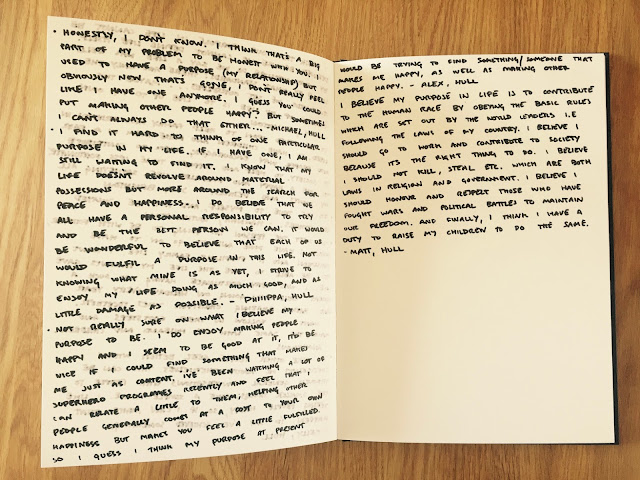 • HONESTLY, I DON'T KNOW. I THINK THAT'S A BIG
PART OF MY PROBLEM TO BE HONEST WITH YOU. I
USED TO HAVE A PURPOSE (MY RELATIONSHIP) BUT
OBVIOUSLY NOW THAT'S GONE, I DON'T REALLY FEEL
LIKE I HAVE ONE ANYMORE. I GUESS YOU COULD
PUT MAKING OTHER PEOPLE HAPPY BUT SOMETIMES
I CAN'T ALWAYS DO THAT EITHER... - MICHAEL, HULL
• I FIND IT HARD TO THINK OF ONE PARTICULAR
PURPOSE IN MY LIFE. IF I HAVE ONE, I AM
STILL WAITING TO FIND IT. I KNOW THAT MY
LIFE DOESN'T REVOLVE AROUND MATERIAL
POSSESSIONS BUT MORE AROUND THE SEARCH FOR
PEACE AND HAPPINESS. I DO BELIEVE THAT WE
ALL HAVE A PERSONAL RESPONSIBILITY TO TRY
AND BE THE BEST PERSON WE CAN. IT WOULD
BE WONDERFUL TO BELIEVE THAT EACH OF US
WOULD FULFIL A PURPOSE IN THIS LIFE. NOT
KNOWING WHAT MINE IS AS YET, I STRIVE TO
ENJOY MY LIFE DOING AS MUCH GOOD, AND AS
LITTLE DAMAGE AS POSSIBLE. - PHILIPPA, HULL
• NOT REALLY SURE ON WHAT I BELIEVE MY
PURPOSE TO BE. I DO ENJOY MAKING PEOPLE
HAPPY AND I SEEM TO BE GOOD AT IT, IT'D BE
NICE IF I COULD FIND SOMETHING THAT MAKES
ME JUST AS CONTENT. I'VE BEEN WATCHING A LOT OF
SUPERHERO PROGRAMES RECENTLY AND FEEL THAT I
CAN RELATE A LITTLE TO THEM, HELPING OTHER
PEOPLE GENERALLY COMES AT A COST TO YOUR OWN
HAPPINESS BUT MAKES YOU FEEL A LITTLE FULFILLED.
SO I GUESS I THINK MY PURPOSE AT PRESENT
WOULD BE TRYING TO FIND SOMETHING/SOMEONE THAT
MAKES ME HAPPY, AS WELL AS MAKING OTHER
PEOPLE HAPPY. - ALEX, HULL
I BELIEVE MY PURPOSE IN LIFE IS TO CONTRIBUTE
TO THE HUMAN RACE BY OBEYING THE BASIC RULES
WHICH ARE SET OUT BY THE WORLD LEADERS I.E
FOLLOWING THE LAWS OF MY COUNTRY. I BELIEVE I
SHOULD GO TO WORK AND CONTRIBUTE TO SOCIETY
BECAUSE IT'S THE RIGHT THING TO DO. I BELIEVE
I SHOULD NOT KILL, STEAL ETC. WHICH ARE BOTH
LAWS IN RELIGION AND GOVERNMENT. I BELIEVE I
SHOULD HONOUR AND RESPECT THOSE WHO HAVE
FOUGHT WARS AND POLITICAL BATTLES TO MAINTAIN
OUR FREEDOM. AND FINALLY, I THINK I HAVE A
DUTY TO RAISE MY CHILDREN TO DO THE SAME.
- MATT, HULL